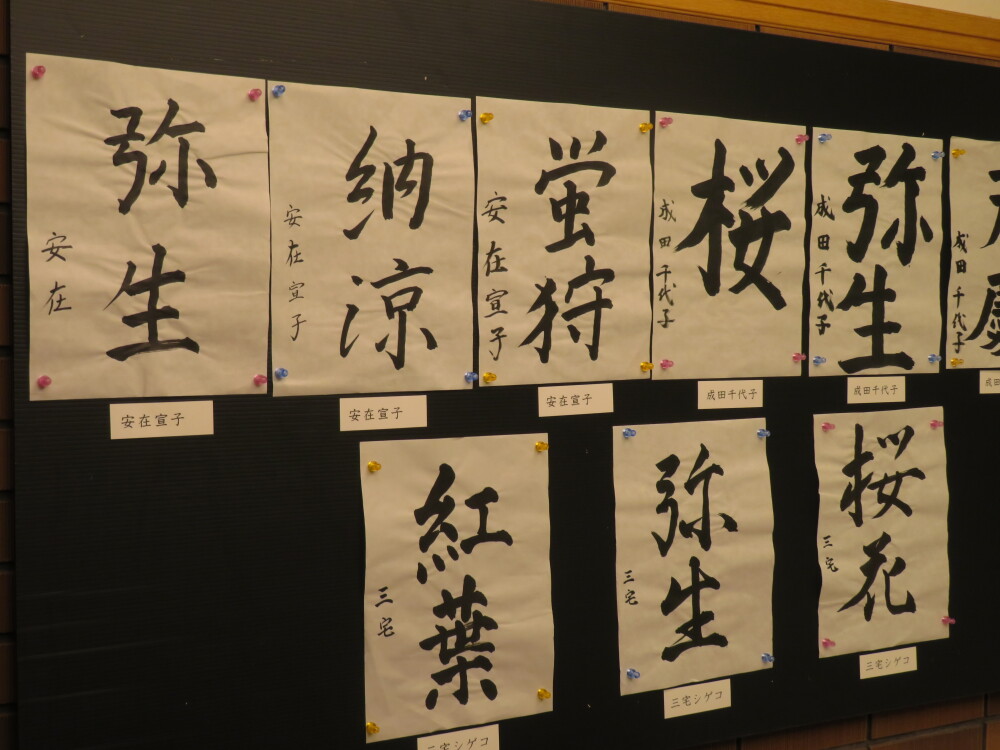 弥生
安在
納涼
安在宣子
蛍狩
安在宣子
桜
成田千代子
弥生
成田千代子
成田千代子
安在宣子
安在宣子
安在宣子
成田千代子
成田千代子
成田
紅葉
三宅
弥生
三宅
桜花
三宅
三宅シゲコ
三宅シゲコ
三宅シゲコ